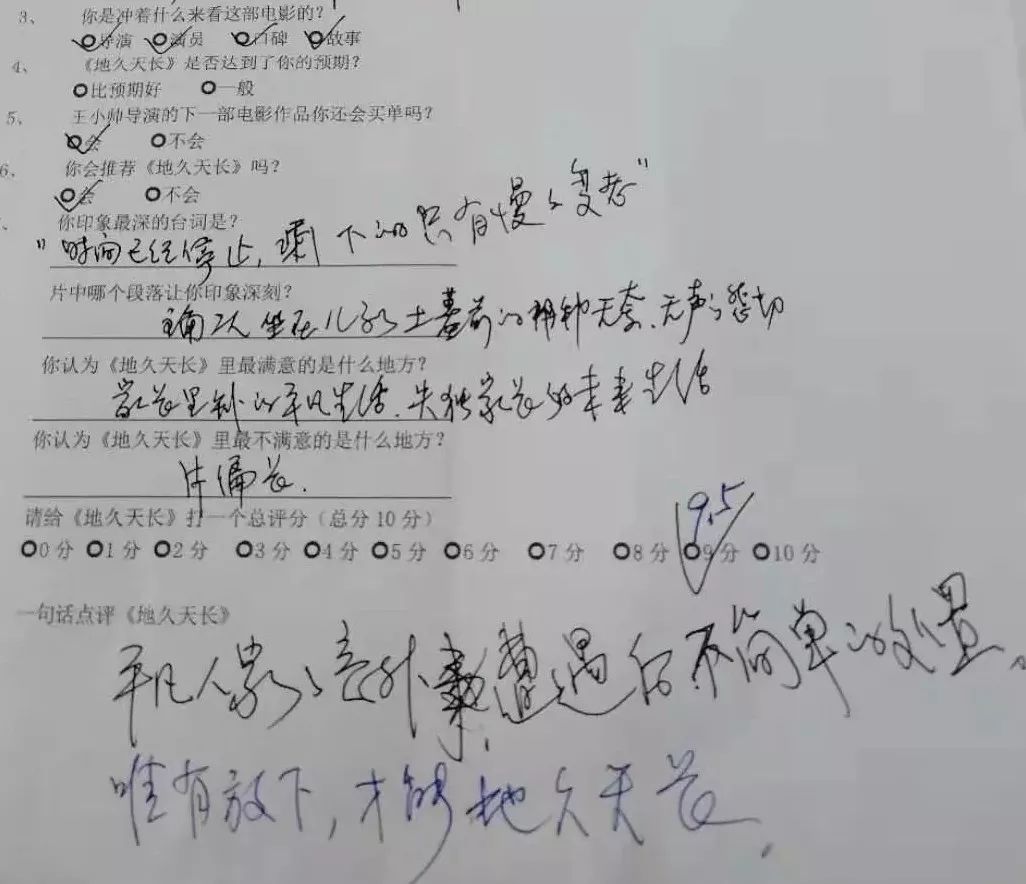 3、 你是冲着什么来看这部电影的?
导演 演员 口碑 故事
4、 《地久天长》是否达到了你的预期?
比预期好 一般
5、 王小帅导演的下一部电影作品你还会买单吗?
会 不会
6、 你会推荐《地久天长》吗?
会 不会
、 你印象最深的台词是?
"时间已经停止,剩下的只有慢慢变老"
片中哪个段落让你印象深刻?
二人坐在儿子的土墓前的那种无奈、无声的悲切
你认为《地久天长》里最满意的是什么地方?
家长里短的平凡生活、失独家长的未来生活
你认为《地久天长》里最不满意的是什么地方?
片偏长.
请给《地久天长》打一个总评分(总分10分)
9.5
0分 1分 2分 3分 4分 5分 6分 7分 8分 9分 10分
一句话点评《地久天长》
平凡人家的意外遭遇的不简单的处置。
唯有放下,才能地久天长.